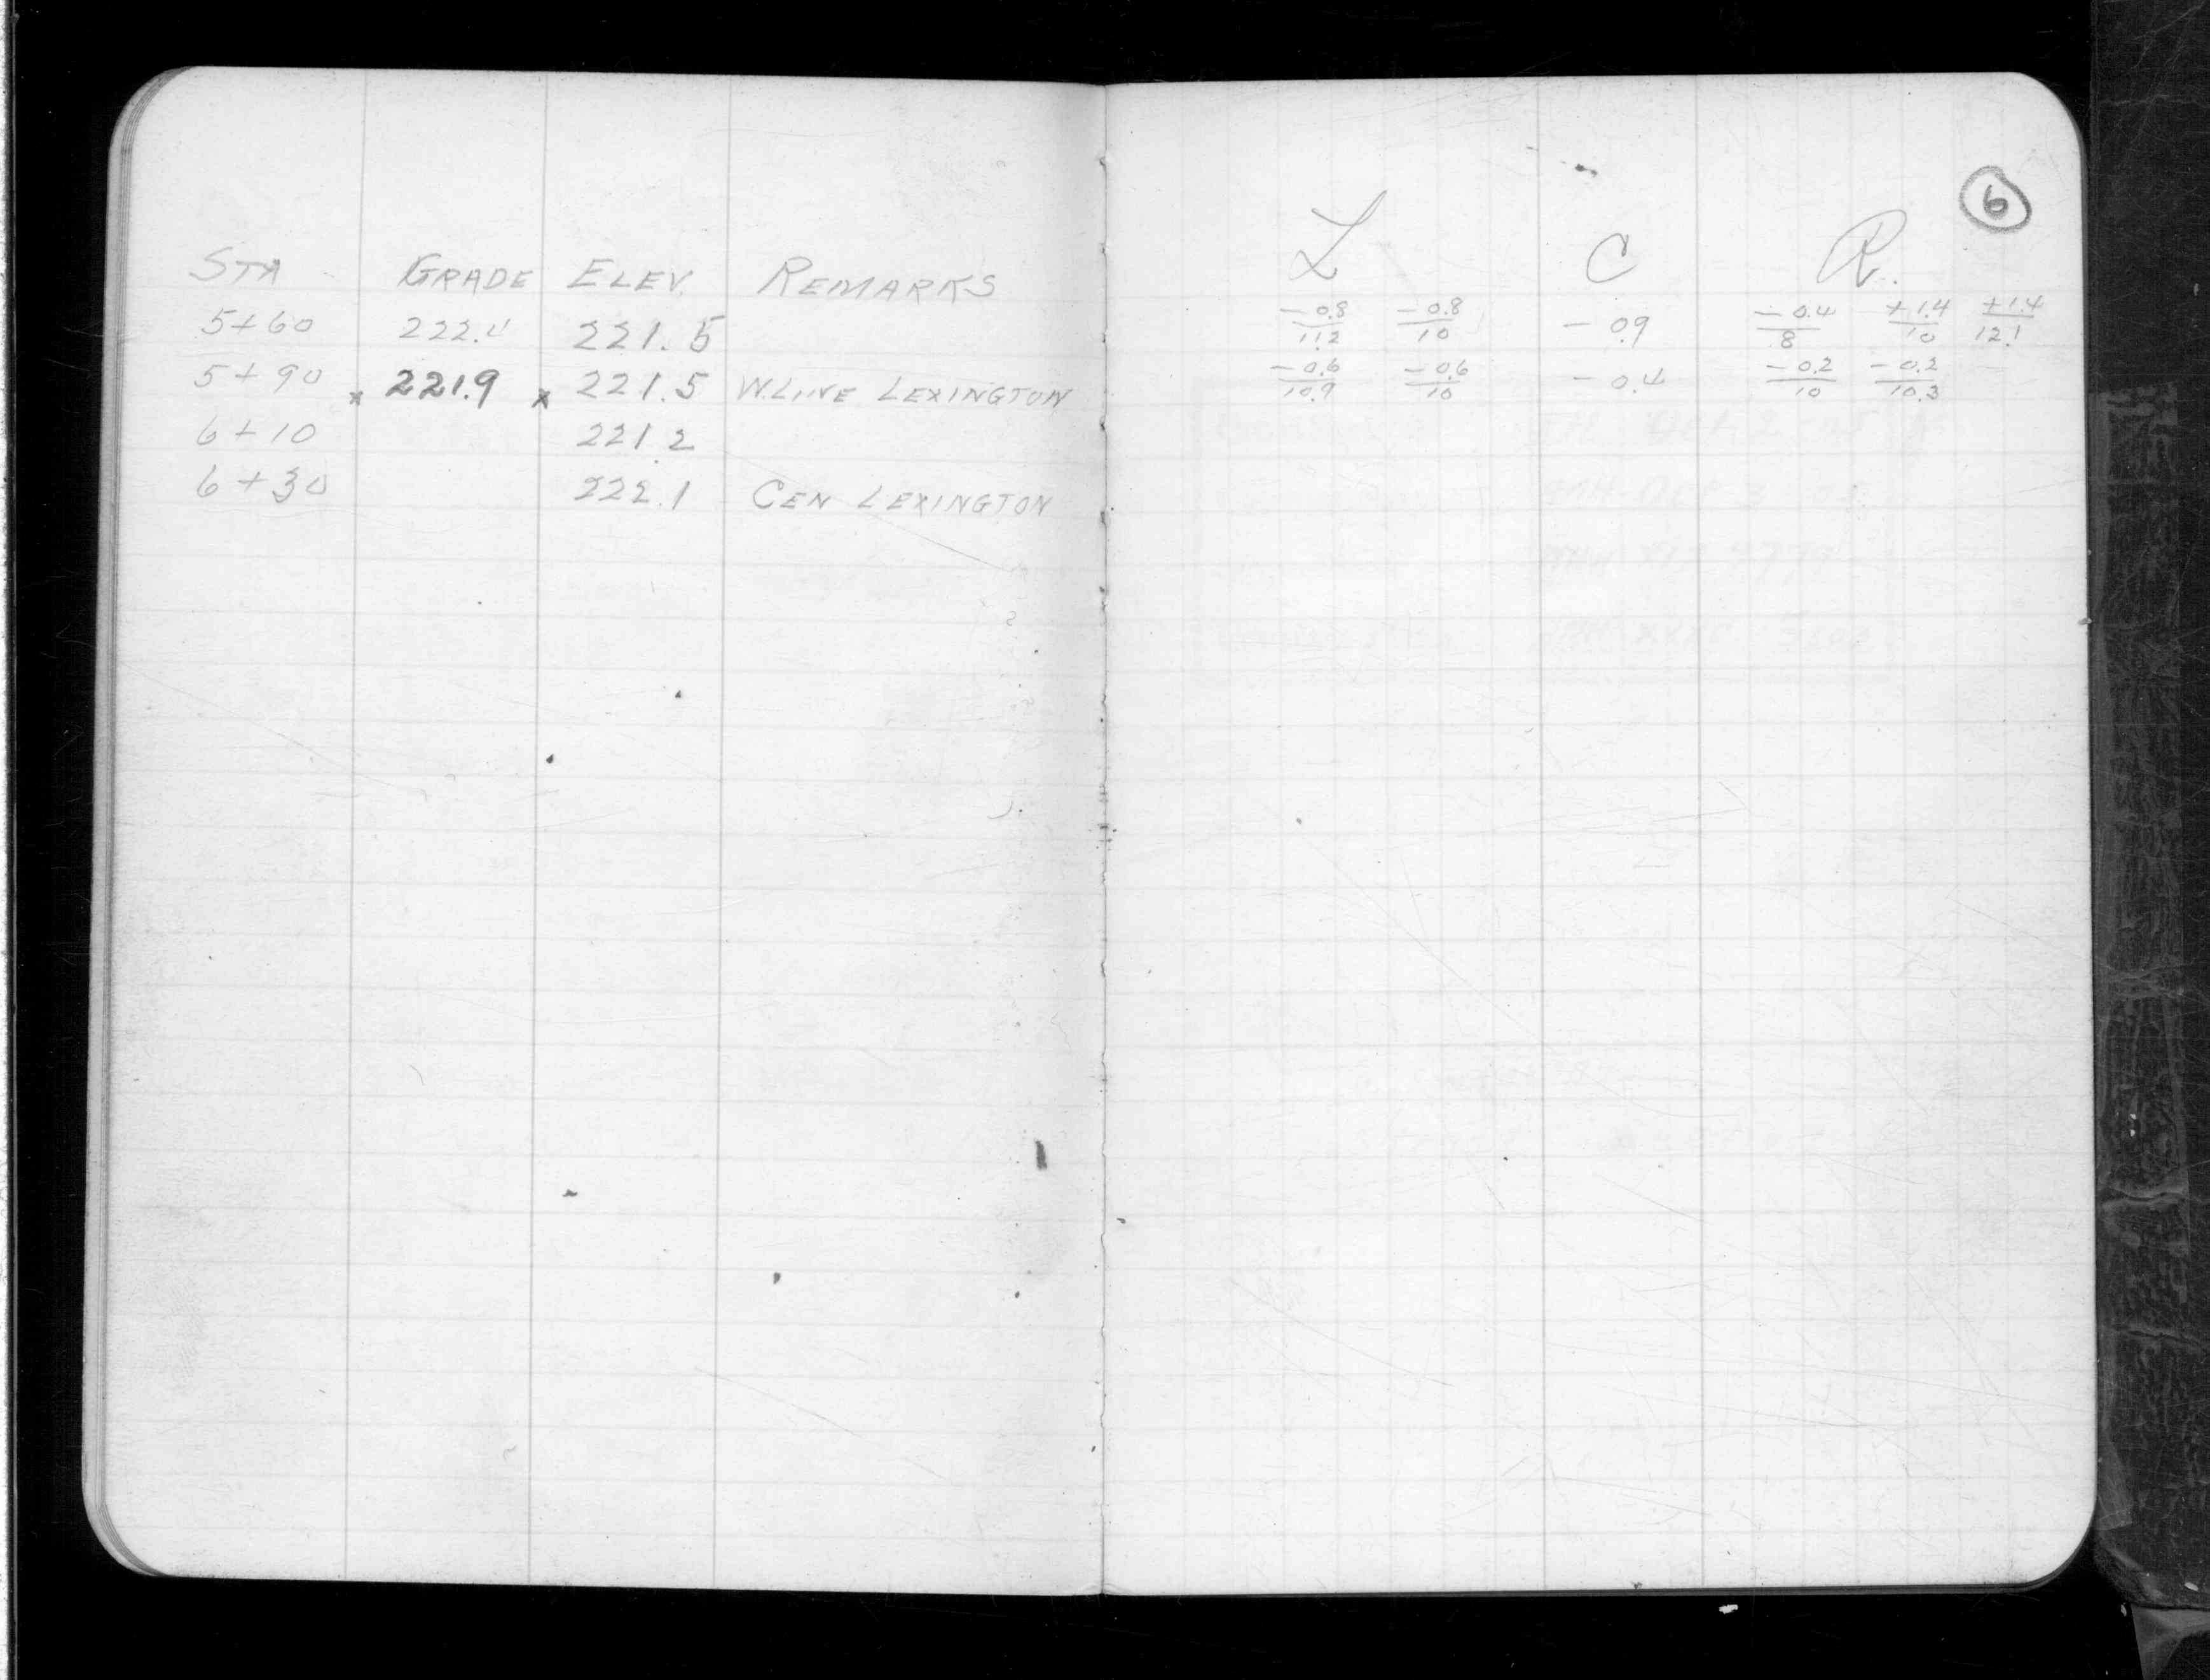 6
STA GRADE ELEV. REMARKS L C R.
5+60 222.4 221.5 -0.8/11.2 -0.8/10 -0.9 -0.4/8 +1.4/10 +1.4/12.1
5+90 x 221.9 x 221.5 W.LINE LEXINGTON -0.6/10.9 -0.6/10 -0.4 -0.2/10 -0.2/10.3
6+10 221.2
6+30 222.1 CEN LEXINGTON